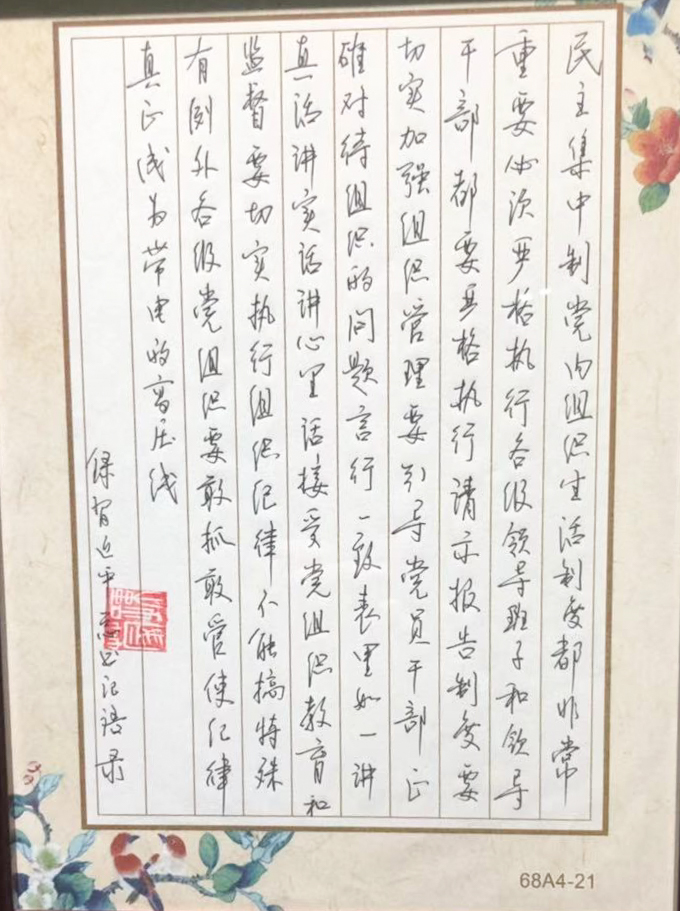 民主集中制党内组织生活制度都非常
重要必须严格执行各级领导班子和领导
干部都要严格执行请示报告制度要
切实加强组织管理要引导党员干部正
确对待组织的问题言行一致表里如一讲
真话讲实话讲心里话接受党组织教育和
监督要切实执行组织纪律不能搞特殊
有例外各级党组织要敢抓敢管使纪律
真正成为带电的高压线
录习近平总书记语录
68A4-21